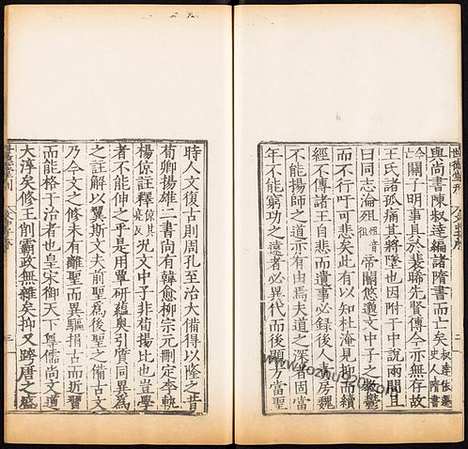 世德堂刊
與尚書陳叔達編諸隋書而亡矣
今亦無存故
王氏諸孤痛其將墜也因附于中說兩間且
曰同志淪殂帝閽悠邈文中子之教鬱
而不行吁可悲矣此有以知杜淹見抑而續
經不傳諸王自悲而遺事必錄後人責房魏
不能揚師之道亦有由焉夫道之深者固當
年不能窮功之遠者必異代而後顯方當聖
時人文復古則周孔至治大備得以隆之昔
荀卿揚雄二書尚有韓愈柳宗元刪定李軌
楊倞註釋況文中子非荀揚比也豈學
者不能伸之乎是用覃研蘊奧引質同異為
之註解以翼斯文夫前聖為後聖之備古文
乃今文之修未有離聖而異驅捐古而近習
而能格于治者也皇宋御天下尊儒尚文道
大淳矣修王削霸政無雜矣抑又跨唐之盛